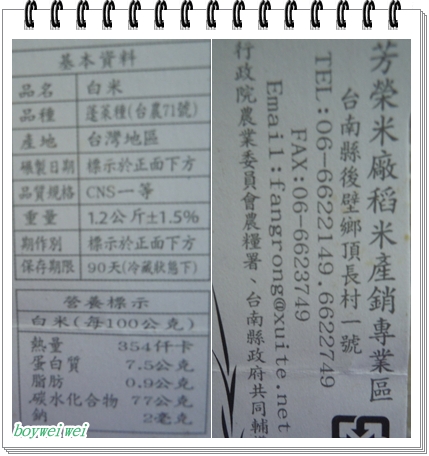 基本資料
品名 白米
品種 蓬萊種(台農71號)
產地 台灣地區
碾製日期 標示於正面下方
品質規格 CNS一等
重量 1.2公斤±1.5%
期作別 標示於正面下方
保存期限 90天(冷藏狀態下)
營養標示
白米(每100公克)
熱量 354仟卡
蛋白質 7.5公克
脂肪 0.9公克
碳水化合物 77公克
鈉 2毫克
芳榮米廠稻米產銷專業區
台南縣後壁鄉頂長村一號
TEL:06-6622149.6622749
FAX:06-6623749
Email:fangrong@xuite.net
行政院農業委員會農糧署、台南縣政府共同輔
boywei wei